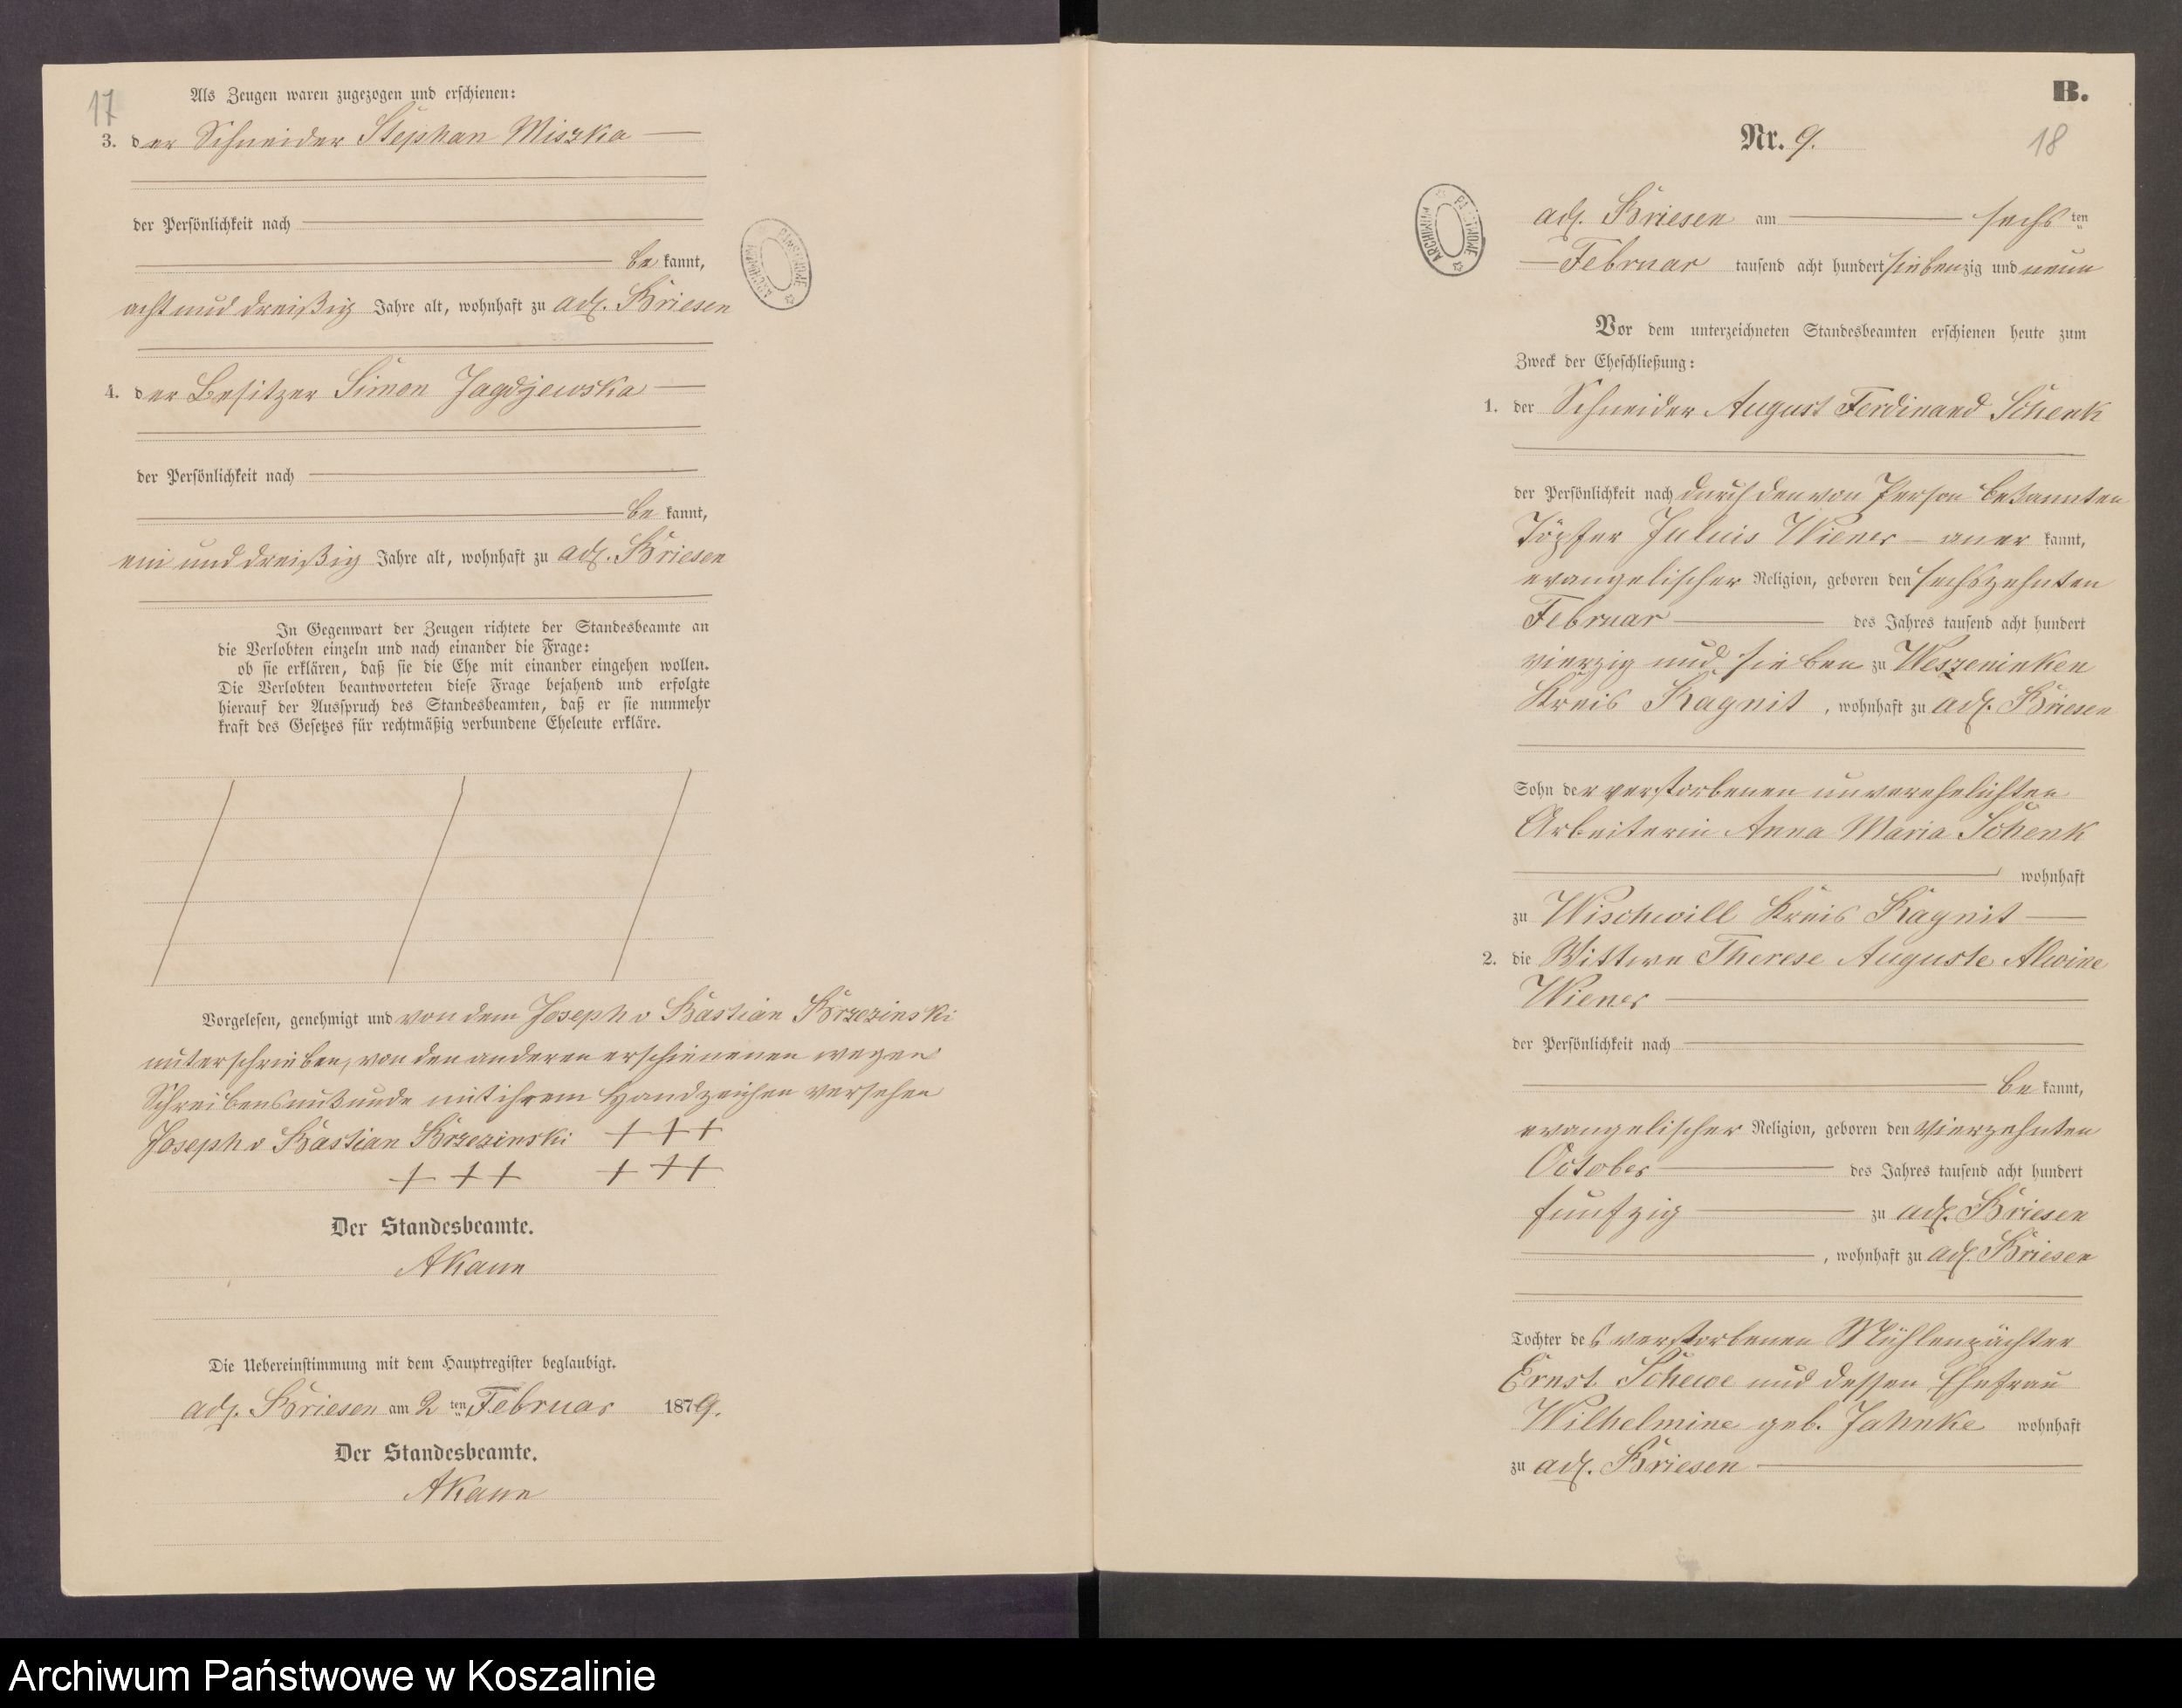 17
Als Zeugen waren zugezogen und erschienen:
3. der Schneider Stephan Miszka
der Persönlichkeit nach
be kannt,
acht und dreißig Jahre alt, wohnhaft zu adl. Briesen
4. der Besitzer Simon Jagdzewska
der Persönlichkeit nach
be kannt,
ein und dreißig Jahre alt, wohnhaft zu adl. Briesen
In Gegenwart der Zeugen richtete der Standesbeamte an
die Verlobten einzeln und nach einander die Frage:
ob sie erklären, daß sie die Ehe mit einander eingehen wollen.
Die Verlobten beantworteten diese Frage bejahend und erfolgte
hierauf der Ausspruch des Standesbeamten, daß er sie nunmehr
kraft des Gesetzes für rechtmäßig verbundene Eheleute erkläre.
Vorgelesen, genehmigt und von dem Joseph v Bastian Brzezinski
unterschrieben, von den anderen erschienenen wegen
Schreibensunkunde mit ihrem Handzeichen versehen
Joseph v Bastian Brzezinski + + +
+ + + + + +
Der Standesbeamte.
AKann
Die Uebereinstimmung mit dem Hauptregister beglaubigt.
adl. Briesen am 2 ten Februar 1879.
Der Standesbeamte.
AKann
B.
Nr. 9.
18
adl. Briesen am sechs ten
Februar tausend acht hundert siebenzig und neun
Vor dem unterzeichneten Standesbeamten erschienen heute zum
Zweck der Eheschließung:
1. der Schneider August Ferdinand Schenk
der Persönlichkeit nach durch den von Person bekannten
Töpfer Julius Wiener aner kannt,
evangelischer Religion, geboren den sechszehnten
Februar des Jahres tausend acht hundert
vierzig und sieben zu Weszeninken
Kreis Ragnit, wohnhaft zu adl. Briesen
Sohn der verstorbenen unverehelichten
Arbeiterin Anna Maria Schenk
wohnhaft
zu Wischwill Kreis Ragnit
2. die Wittwe Therese Auguste Alwine
Wiener
der Persönlichkeit nach
be kannt,
evangelischer Religion, geboren den vierzehnten
October des Jahres tausend acht hundert
funfzig zu adl. Briesen
, wohnhaft zu adl. Briesen
Tochter des verstorbenen Mühlenpächter
Ernst Schewe und dessen Ehefrau
Wilhelmine geb. Jahnke wohnhaft
zu adl. Briesen
Archiwum Państwowe w Koszalinie